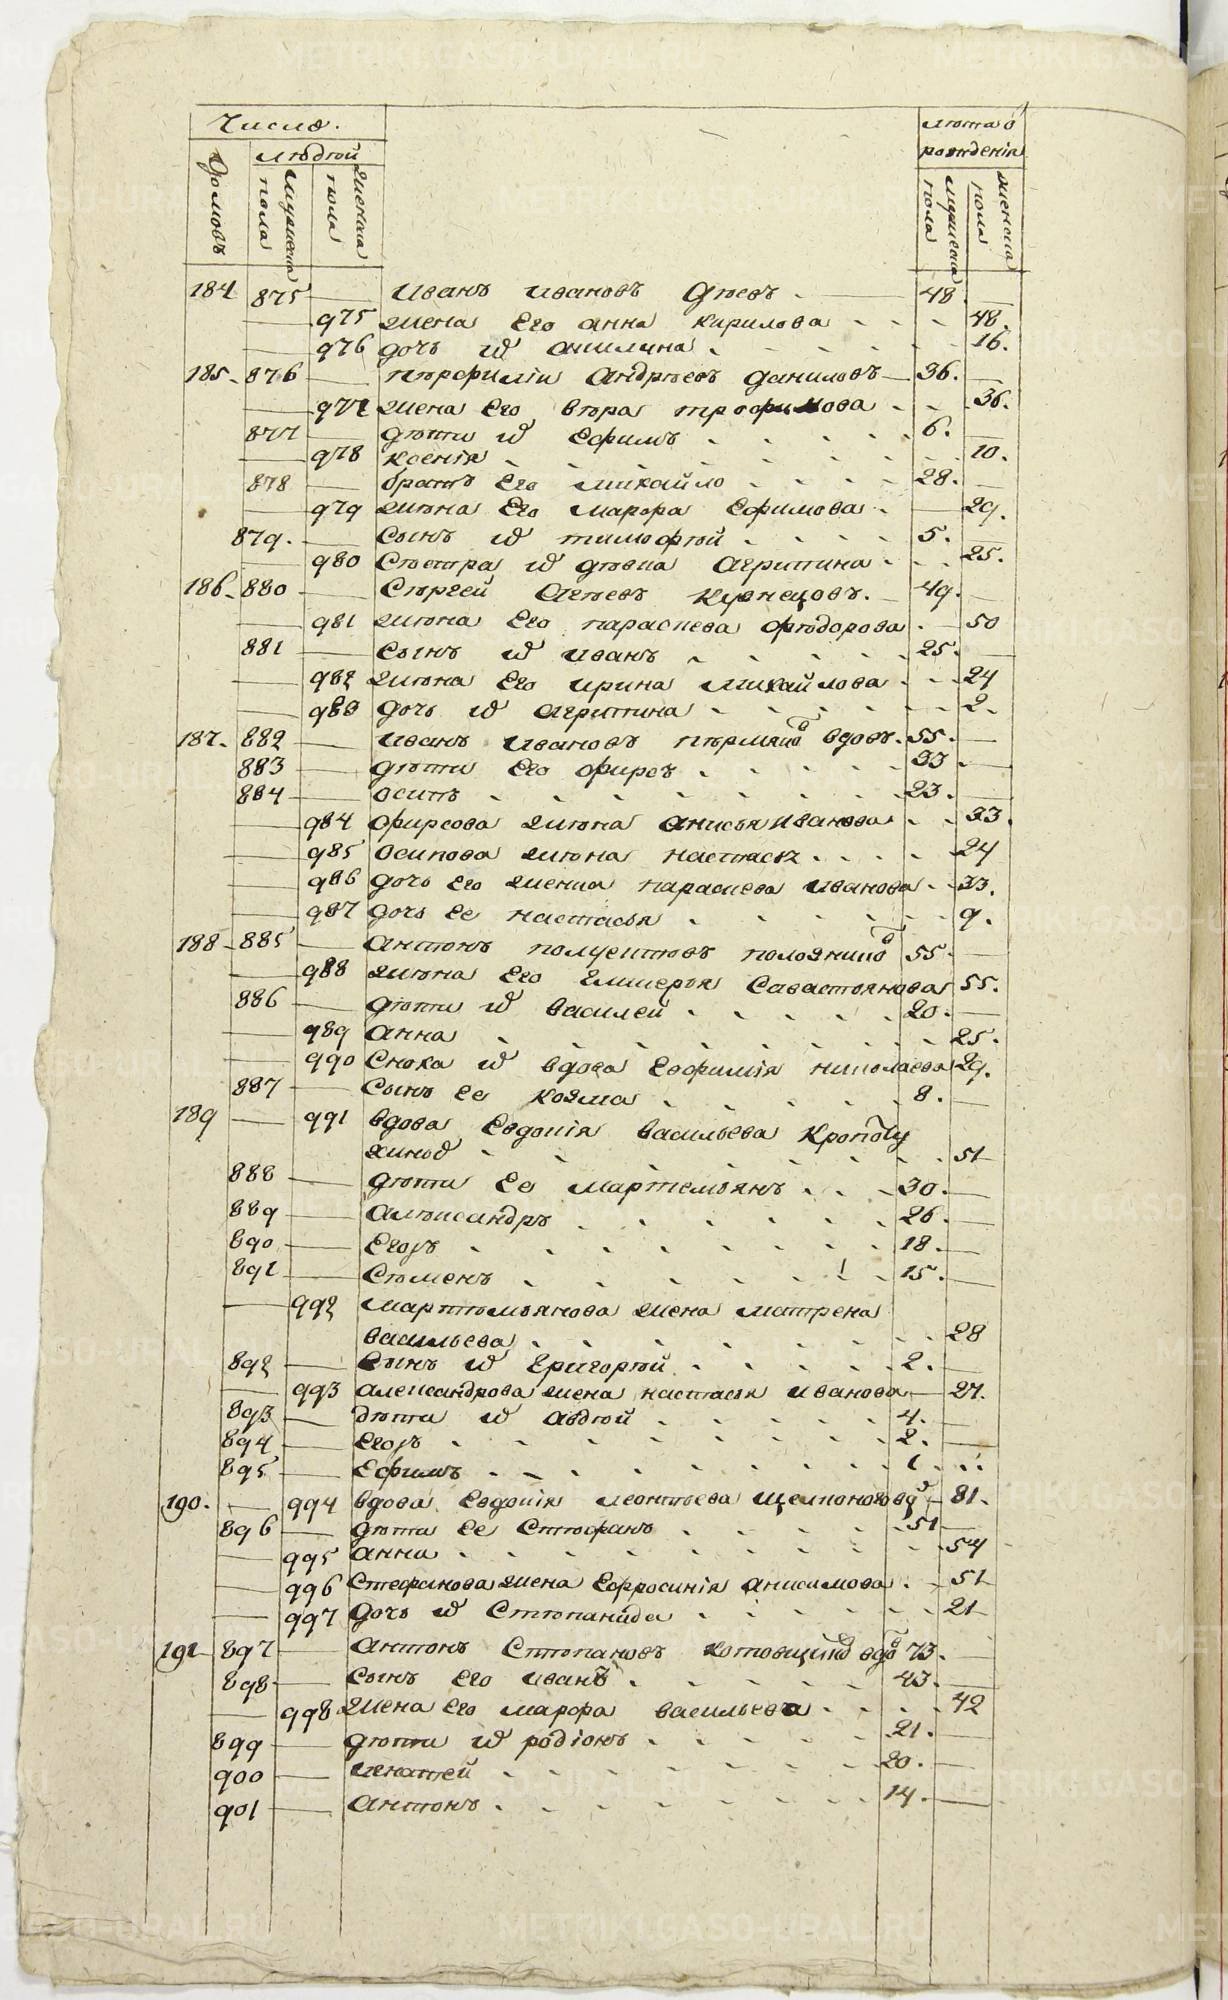 Число.
людей
лета ѿ рожденія
домовъ
мужеска пола
женска пола
мужеска пола
женска пола
184 875 — Иванъ Ивановъ 48
975 жена Его анна кирилова 48.
976 дочь ѿ акилина 16.
185. 876 — Перфилій Андреевъ даниловъ 36.
977 жена Его вѣра трофимова 36.
877 — дети ѿ Ефимъ 6.
978 ксенія 10.
878 — братъ Его михайло 28.
979 жена Его марфа Ефимова 29.
879. — Сынъ ѿ тимофей 5.
980 Сестра ѿ девка Агрипина 25.
186. 880 — Сергей Агеевъ Кузнецовъ. 49.
981 жена Его параскева федорова 50
881 — Сынъ ѿ Иванъ 25.
982 жена Его ирина михайлова 24
983 дочь ѿ агрипина 2.
187. 882 — Иванъ Ивановъ вдовъ. 55.
883 — дети Его фирсъ 33
884 — осипъ 23.
984 фирсова жена анисья Иванова 33.
985 осипова жена настасья 24
986 дочь Его женка параскева Иванова 33.
987 дочь Ее настасья 9.
188 885 — антонъ 55.
988 жена Его Савастьянова 55.
886 — дети ѿ василей 20.
989 анна 25.
990 Сноха ѿ вдова Евфимія николаева 29.
887 — Сынъ Ее козма 8.
189 — 991 вдова Евдокія васильева 51
888 — дети Ее мартемьянъ 30.
889 — алѣксандръ 26.
890 — Егоръ 18.
891 — Семенъ 15.
992 мартемьянова жена матрена
васильева 28
892 — Сынъ ѿ Григорей 2.
993 александрова жена настасья Иванова 27.
893 — дети ѿ авдей 4.
894 — Егоръ 2.
895 — Ефимъ 1
190. — 994 вдова Евдокія леонтьева 81.
896 — дети Ее Стефанъ 51
995 анна 54
996 Стефанова жена Ефросинія анисимова 51
997 дочь ѿ Степанида 21
191 897 — антонъ Степановъ 73.
898 — Сынъ Его Иванъ 43.
998 жена Его марфа васильева 42
899 — дети ѿ родіонъ 21.
900 — игнатей 20.
901 — антонъ 14.
METRIKI.GASO-URAL.RU